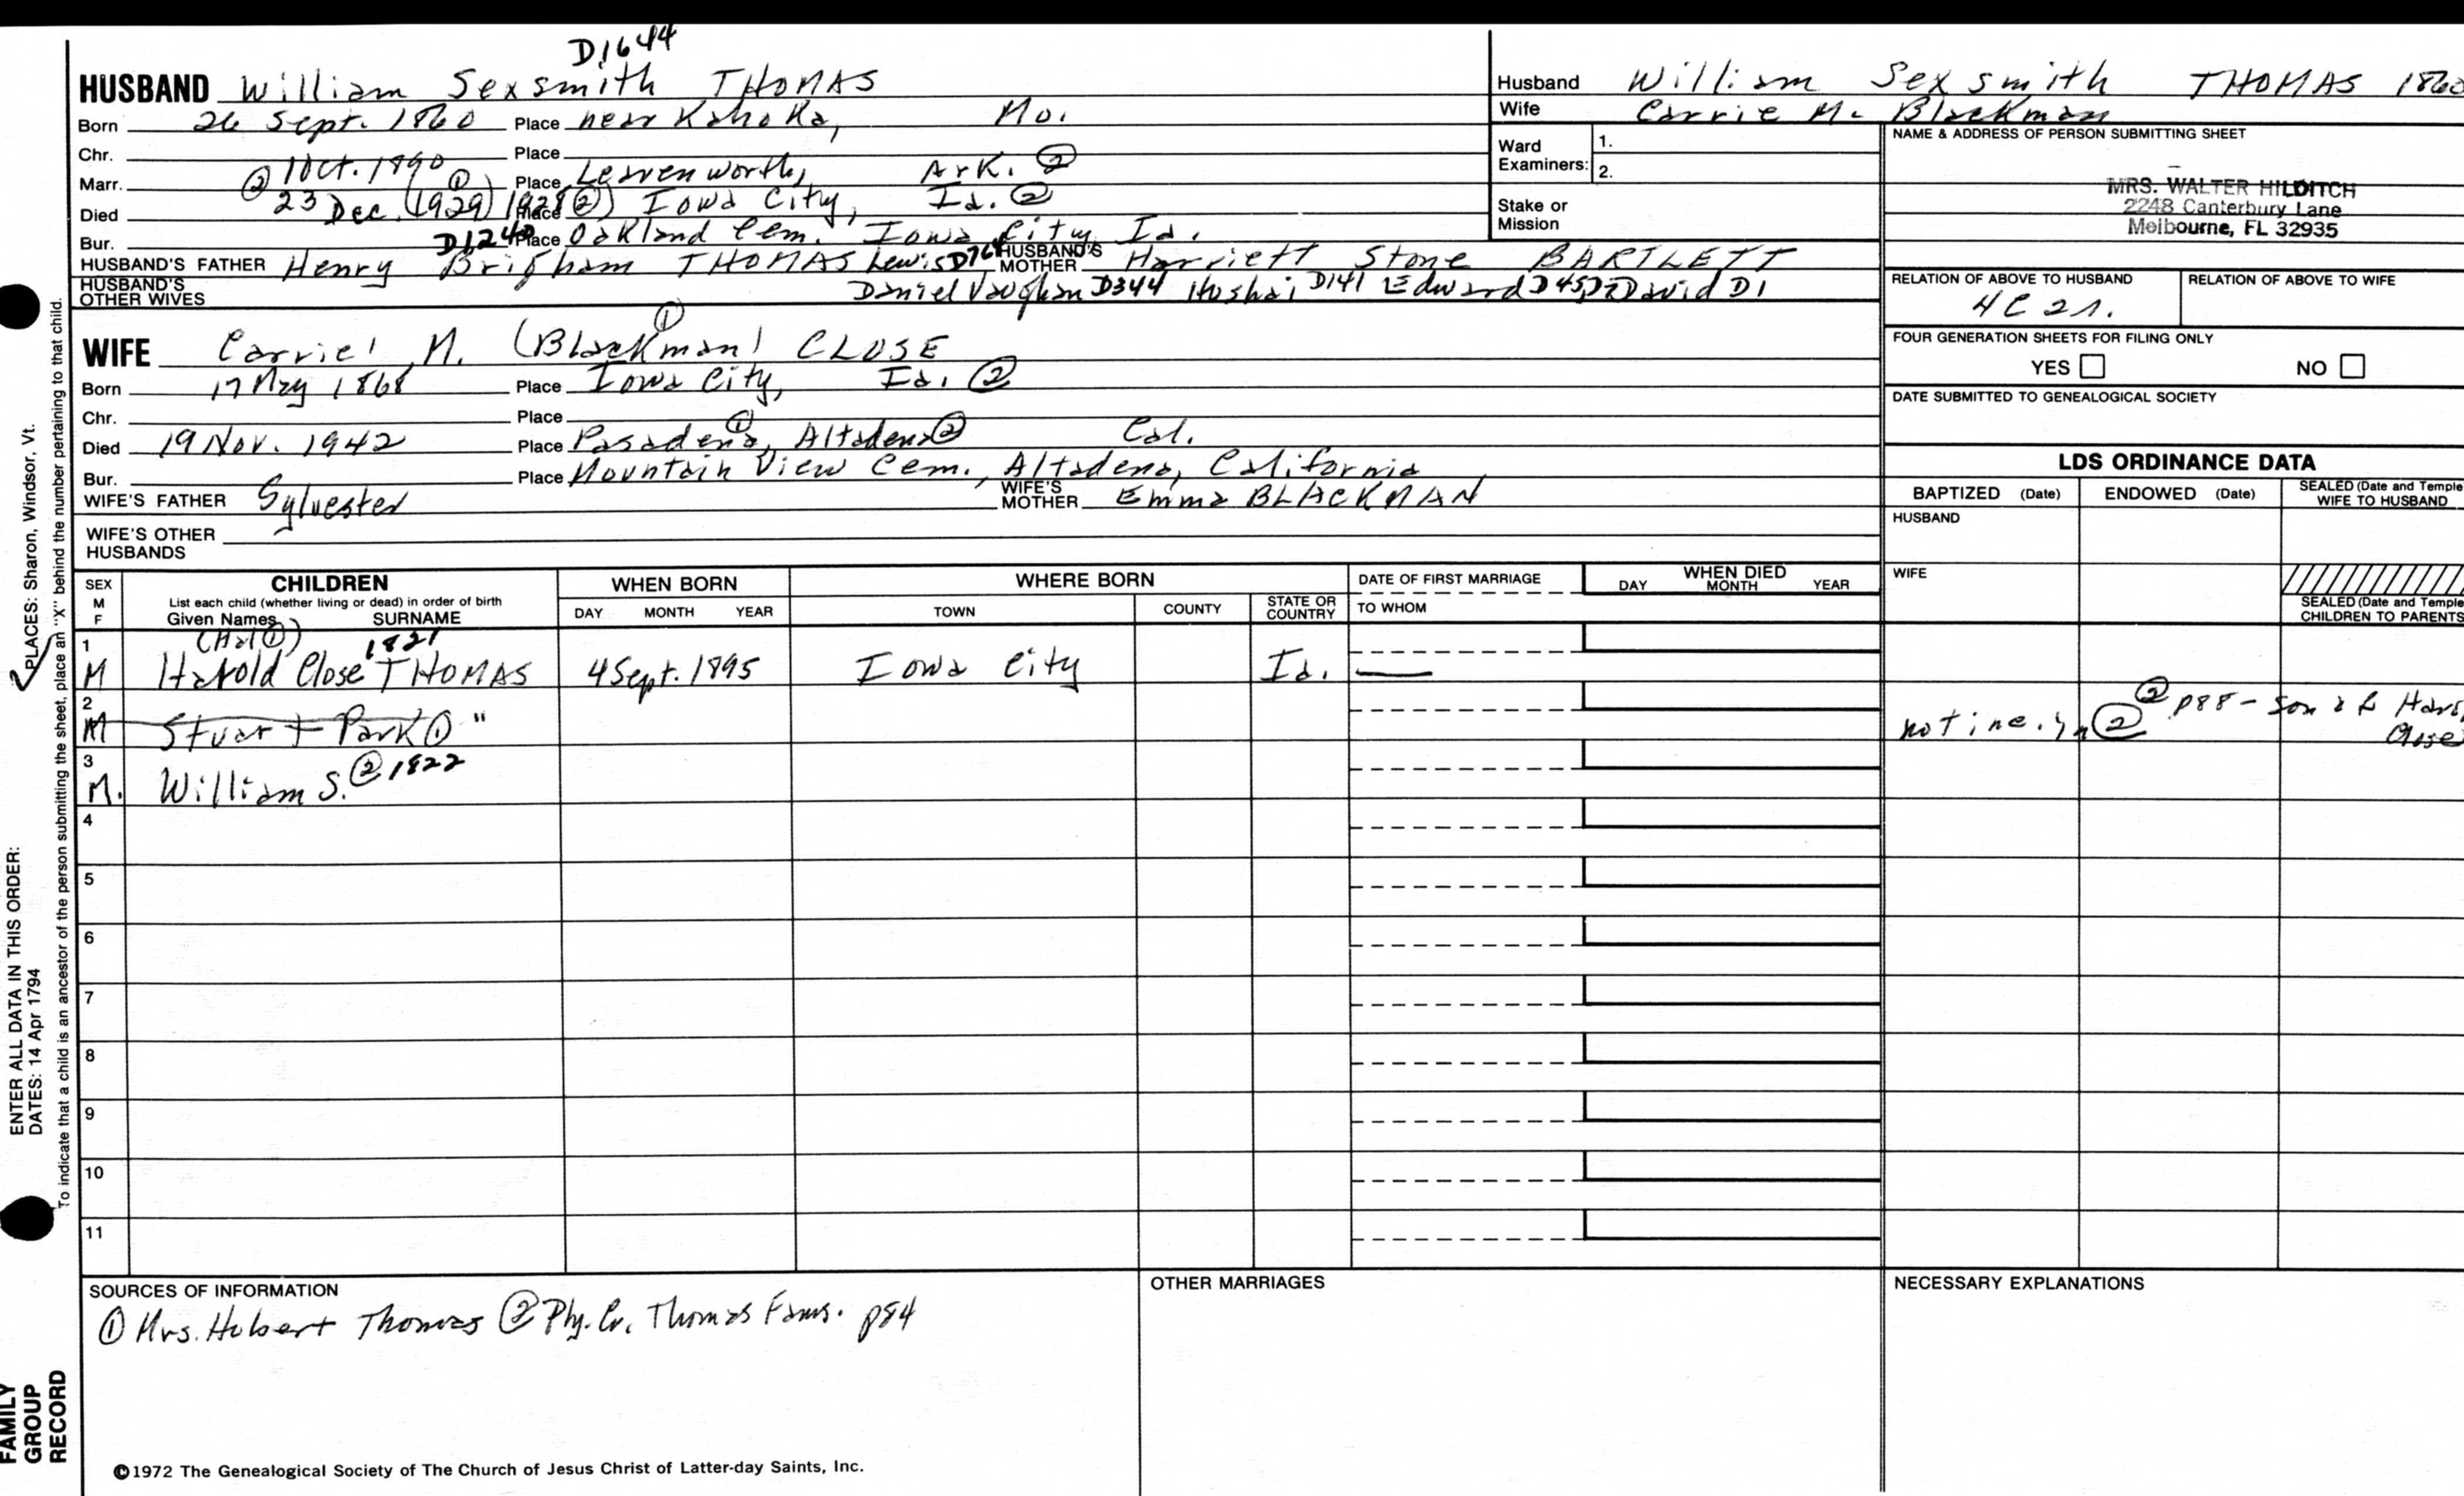 D1644
HUSBAND William Sexsmith THOMAS
Born 26 Sept. 1860 Place near Kahoka, Mo.
Chr. Place
Marr. ② 1 Oct. 1890 Place Leavenworth, Ark. ②
Died 23 Dec. (1929)① 1928② Place Iowa City, Ia. ②
Bur. Place Oakland Cem. Iowa City, Ia.
HUSBAND'S FATHER D1240 Henry Brigham THOMAS Lewis HUSBAND'S MOTHER Harriett Stone BARTLETT
HUSBAND'S OTHER WIVES Daniel Vaughan D344 Hushai D141 Edward D45 David D1
WIFE Carrie M. (Blackman)① CLOSE
Born 17 May 1868 Place Iowa City, Ia. ②
Chr. Place
Died 19 Nov. 1942 Place Pasadena①, Altadena② Cal.
Bur. Place Mountain View Cem., Altadena, California
WIFE'S FATHER Sylvester WIFE'S MOTHER Emma BLACKMAN
WIFE'S OTHER HUSBANDS
Husband William Sexsmith THOMAS 1860
Wife Carrie M. Blackman
Ward Examiners: 1.
2.
Stake or Mission
NAME & ADDRESS OF PERSON SUBMITTING SHEET
MRS. WALTER HILDITCH
2248 Canterbury Lane
Melbourne, FL 32935
RELATION OF ABOVE TO HUSBAND RELATION OF ABOVE TO WIFE
4C2r.
FOUR GENERATION SHEETS FOR FILING ONLY
YES NO
DATE SUBMITTED TO GENEALOGICAL SOCIETY
LDS ORDINANCE DATA
BAPTIZED (Date) ENDOWED (Date) SEALED (Date and Temple) WIFE TO HUSBAND
HUSBAND
WIFE
SEALED (Date and Temple) CHILDREN TO PARENTS
SEX M F
CHILDREN
List each child (whether living or dead) in order of birth
Given Names SURNAME
WHEN BORN
DAY MONTH YEAR
WHERE BORN
TOWN COUNTY STATE OR COUNTRY
DATE OF FIRST MARRIAGE
TO WHOM
WHEN DIED
DAY MONTH YEAR
1 (Hal①) 1821
M Harold Close THOMAS 4 Sept. 1895 Iowa City Ia. —
2
M Stuart Park① " not inc. in ② ② p88 - son of Close
3
M. William S. ② 1822
4
5
6
7
8
9
10
11
SOURCES OF INFORMATION
① Mrs. Hobert Thomas ② Thomas Fams. p84
OTHER MARRIAGES
NECESSARY EXPLANATIONS
©1972 The Genealogical Society of The Church of Jesus Christ of Latter-day Saints, Inc.
FAMILY GROUP RECORD
ENTER ALL DATA IN THIS ORDER:
DATES: 14 Apr 1794
PLACES: Sharon, Windsor, Vt.
To indicate that a child is an ancestor of the person submitting the sheet, place an "X" behind the number pertaining to that child.